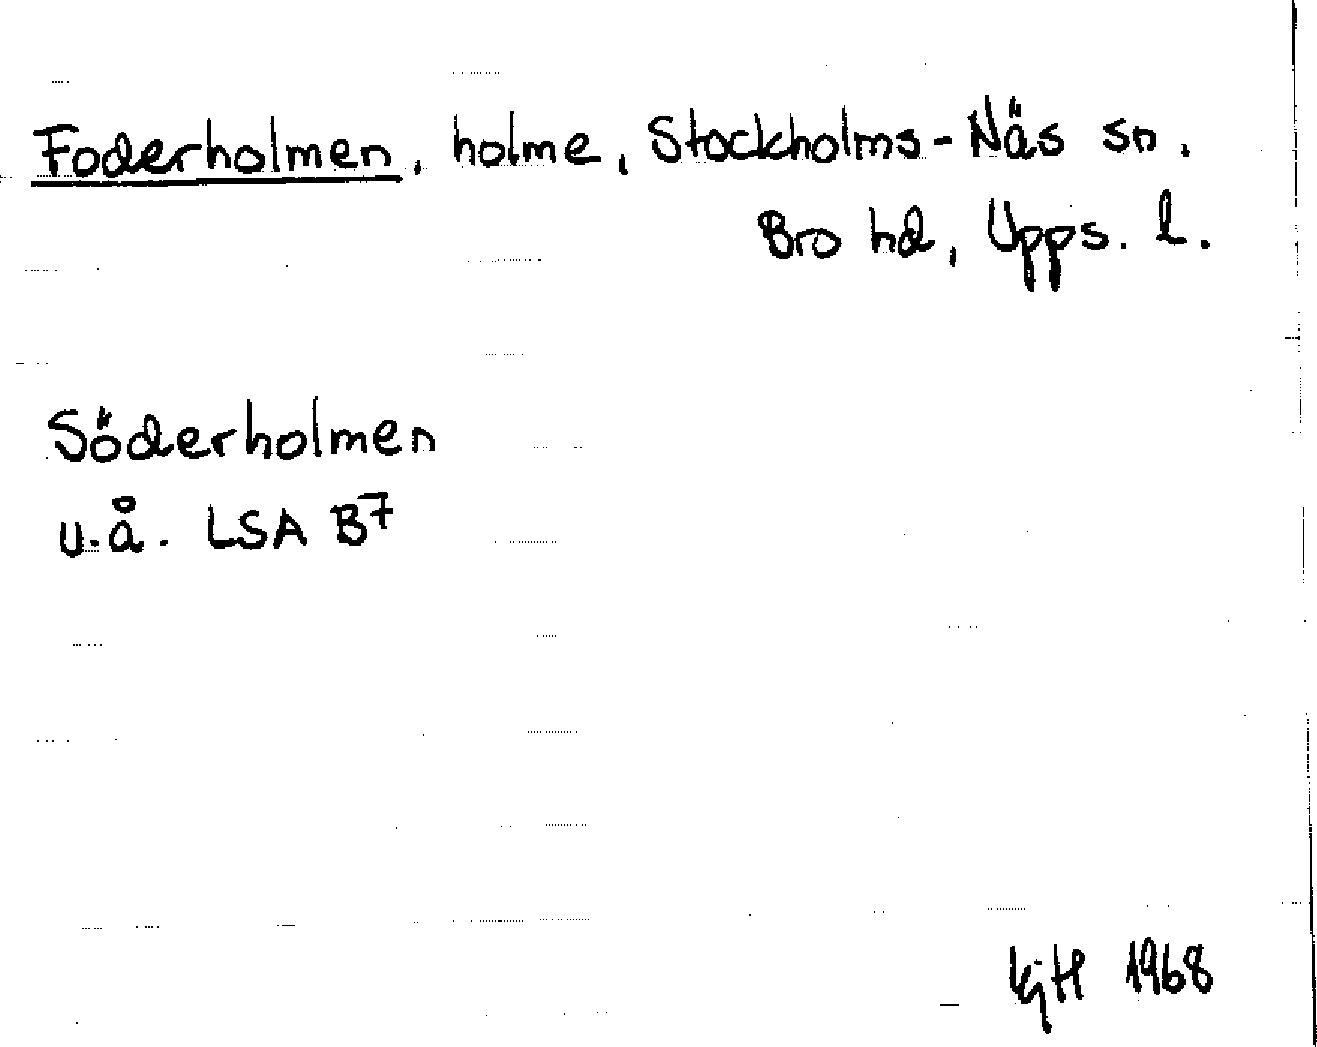 Foderholmen, holme, Stockholms-Näs sn.
Bro hd, Upps. l.
Söderholmen
u.å. LSA B7
KjH 1968